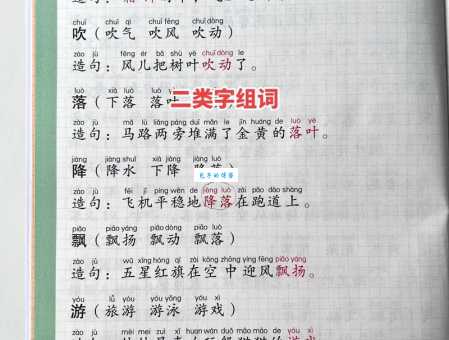 chuī chuī qì chuī fēng chuī dòng
吹（吹气 吹风 吹动）
zào jù fēng ér bǎ shù yè chuī dòng le
造句：风儿把树叶吹动了。
luò xià luò luò yè
落（下落 落叶
二类字组词
zào jù mǎ lù liǎng páng duī mǎn le jīn huáng de luò yè
造句：马路两旁堆满了金黄的落叶。
jiàng jiàng shuǐ xià jiàng jiàng luò
降（降水 下降 降落）
包子的博客
zào jù fēi jī píng wěn de jiàng luò zài pǎo dào shàng
造句：飞机平稳地降落在跑道上。
piāo piāo yáng piāo dòng piāo luò
飘（飘扬 飘动 飘落）
zào jù wǔ xīng hóng qí zài kōng zhōng yíng fēng piāo yáng
造句：五星红旗在空中迎风飘扬。
yóu lǚ yóu yóu yǒng yóu xì
游（旅游 游泳 游戏）
zào jù mèi mei zuì xǐ huan wán duǒ māo māo de yóu xì